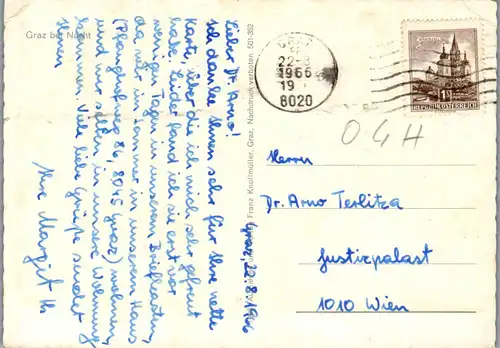 Graz bei Nacht
Graz, 22.8.1966
Lieber Dr. Arno!
Ich danke Ihnen sehr für Ihre nette
Karte, über die ich mich sehr gefreut
habe. Leider fand ich sie erst vor
wenigen Tagen in unserem Briefkasten,
da wir im Sommer in unserem Haus
(Pfanghofweg 86, 8045 Graz) wohnen,
und nur selten in unsere Wohnung
kommen. Viele liebe Grüße sendet
Ihnen
Ihre Margit
Franz Knollmüller, Graz, Nachdruck verboten 501-352
GRAZ
22-8
1966
19
8020
REPUBLIK ÖSTERREICH
04H
Herrn
Dr. Arno Terlitza
Justizpalast
1010 Wien